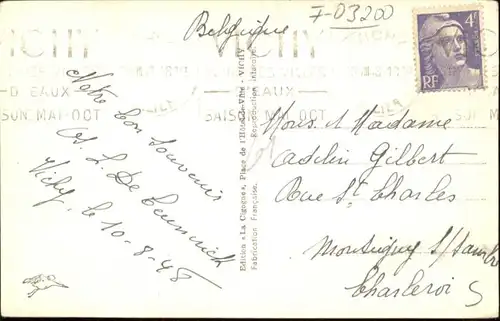 Belgique
F-03200
VICHY
VICHY
D'EAUX
D'EAUX
SON MAI-OCT
SAISON MAI-OCT
4F
RF
Notre bon souvenir
L. De
Vichy, le 10-8-48
Edition « La Cigogne », Place de l'Hôtel-de-Ville - VICHY
Fabrication Française. Reproduction Interdite.
Mons. & Madame
Gilbert
Rue St Charles
Montigny s/Sambre
Charleroi